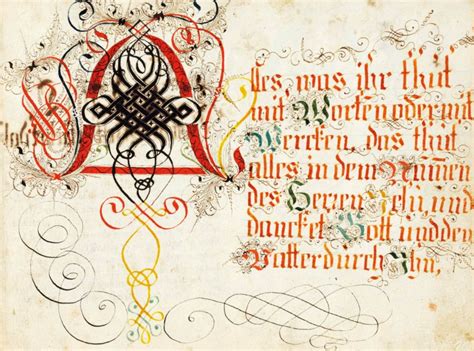 Alles, was ihr thut
mit Worten oder mit
Wercken, das thut
alles in dem Nam̄en
des Herren Jesu, und
dancket Gott und dem
Vatter durch Ihn,